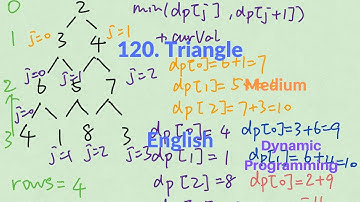 0
2
min(dp[j], dp[j+1])
+ curVal
1
j=0
3
4
j=1
120. Triangle
dp[0]=6+1=7
j=0
6
j=1
5
7
j=2
dp[1]=5
Medium
2
dp[2]=7+3=10
3
j=0
4
1
8
3
English
dp[0]=4
dp[0]=3+6=9
j=1
j=2
j=3
dp[1]=1
Dynamic
dp[1]
=10
Programming
rows=4
dp[2]=8
dp[0]=2+9